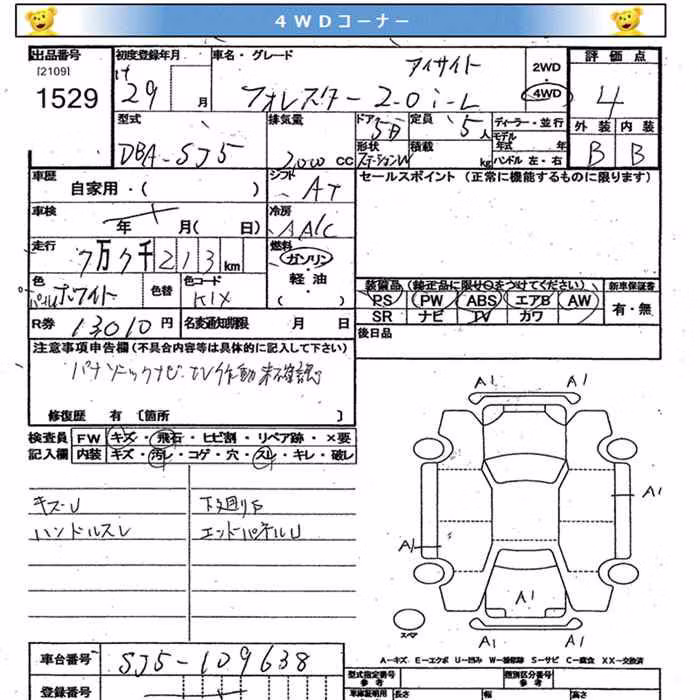 4WDコーナー
出品番号
[2109]
1529
初度登録年月
29 月
車名・グレード
アイサイト
フォレスター 2.0i-L
2WD
4WD
評価点
4
外装 内装
B B
型式
DBA-SJ5
排気量
2000 CC
ドア
5D
定員
5人
形状
ステーションW
積載
kg
ディーラー・並行
モデル
年式 年
ハンドル 左・右
車歴
自家用・( )
シフト
AT
セールスポイント (正常に機能するものに限ります)
車検
年 月( 日)
冷房
AAC
走行
7万7千213km
燃料
ガソリン
軽・油
( )
色
パールホワイト
色替
色コード
K1X
装備品(純正品に限り○をつけてください)
新車保証書
PS PW ABS エアB AW
SR ナビ TV カワ
有・無
R券 13010円
名変通知期限 月 日
後日品
注意事項申告欄(不具合内容等は具体的に記入して下さい)
パナソニックナビ、TV作動未確認
修復歴 有 〔箇所 〕
検査員
記入欄
FW キズ・飛石・ヒビ割・リペア跡・×要
内装 キズ・汚レ・コゲ・穴・スレ・キレ・破レ
キズ・U 下廻りS
ハンドルスレ エンドパネルU
A1 A1
A1
A1
A1
A1 A1
スペア
A-キズ E-エクボ U-凹み W-補修跡 S-サビ C-腐食 XX-交換済
車台番号
SJ5-109638
登録番号
型式指定番号
参考
類別区分番号
参考
車庫証明用
長さ 幅 高さ